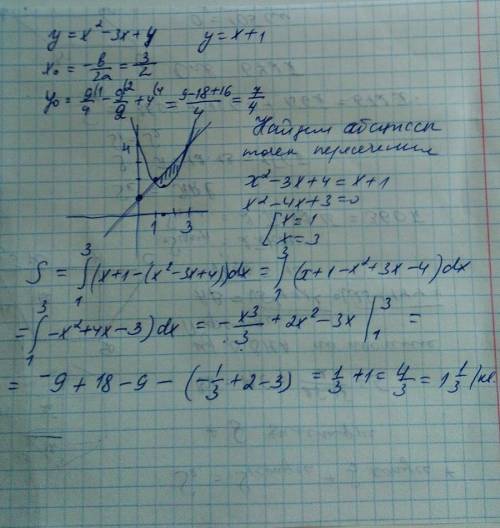 y = x² - 3x + 4    y = x + 1
x₀ = -в/2a = 3/2
y₀ = 9/4 - 9/2 + 4 = (9 - 18 + 16)/4 = 7/4
Найдем абсциссы
точек пересечения
x² - 3x + 4 = x + 1
x² - 4x + 3 = 0
[x = 1
x = 3
4
1 3
S = ∫₁³ (x + 1 - (x² - 3x + 4)) dx = ∫₁³ (x + 1 - x² + 3x - 4) dx
= ∫₁³ -x² + 4x - 3) dx = -x³/3 + 2x² - 3x |₁³ =
= -9 + 18 - 9 - (-1/3 + 2 - 3) = 1/3 + 1 = 4/3 = 1 1/3